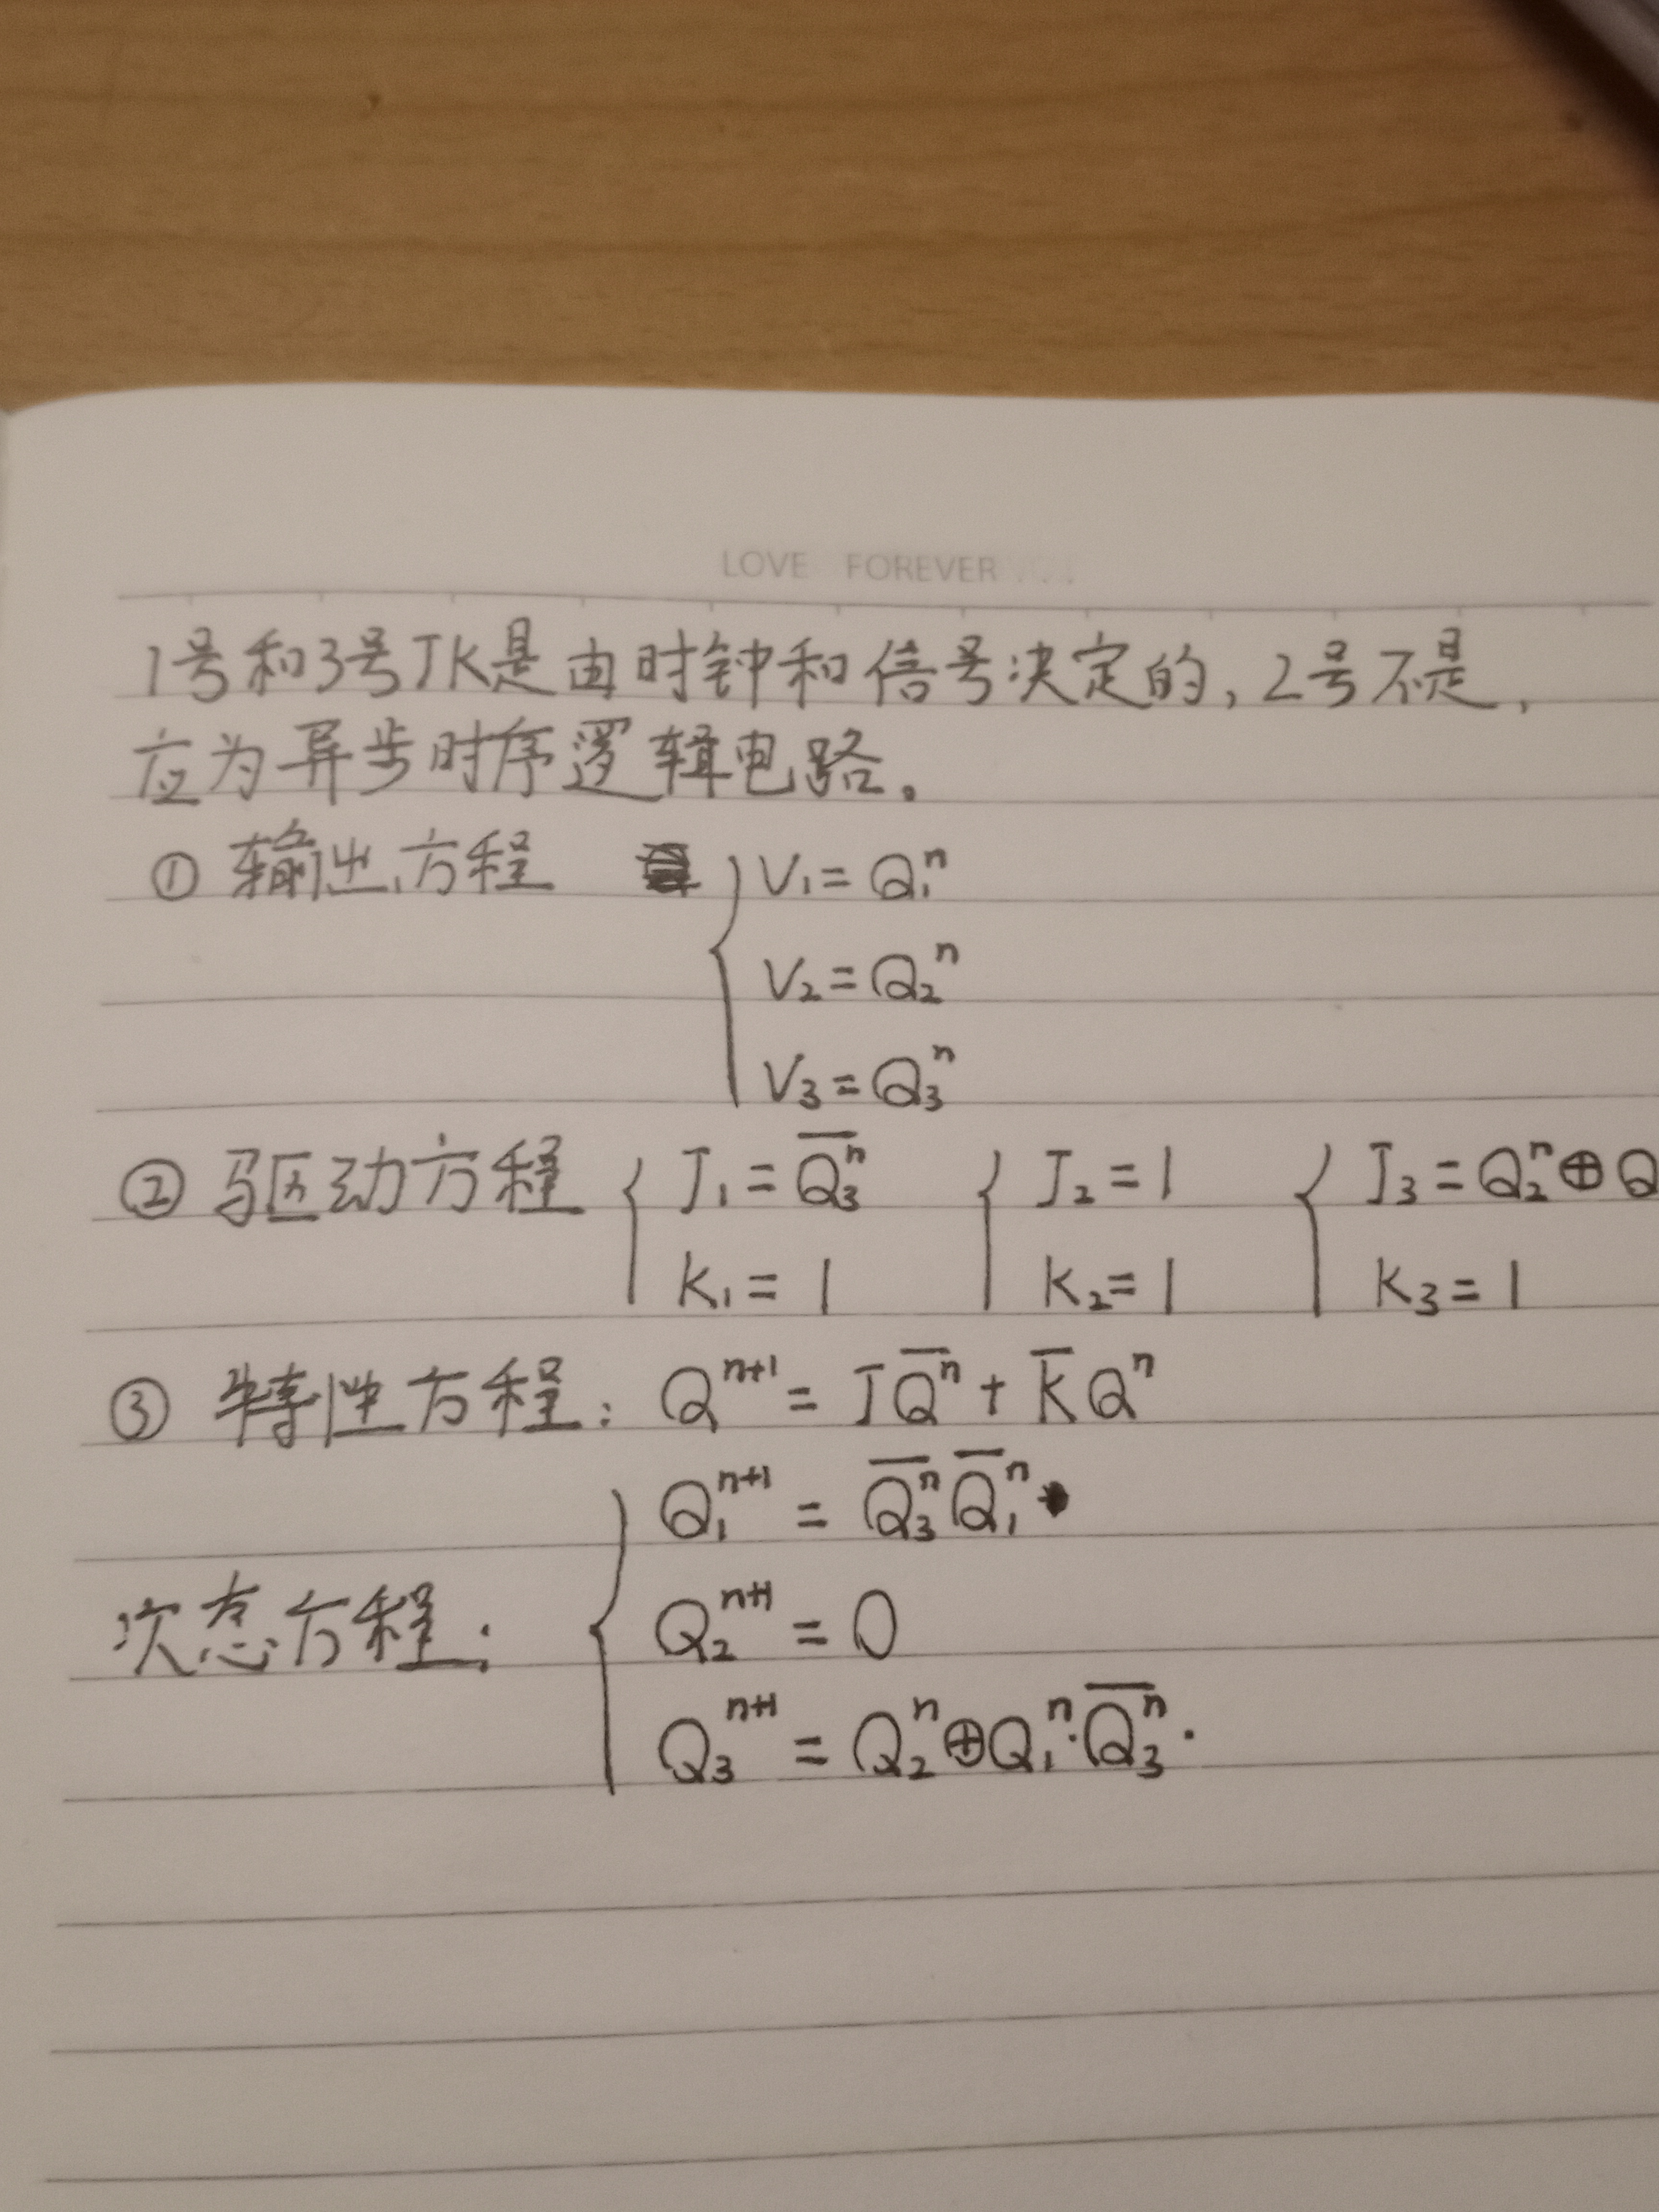 LOVE FOREVER
1号和3号JK是由时钟和信号决定的,2号不是,
应为异步时序逻辑电路。
① 输出方程 V₁=Q₁ⁿ
V₂=Q₂ⁿ
V₃=Q₃ⁿ
② 驱动方程 { J₁=Q̅₃ⁿ { J₂=1 { J₃=Q₂ⁿ⊕Q
K₁=1 K₂=1 K₃=1
③ 特性方程: Qⁿ⁺¹=JQ̅ⁿ+K̅Qⁿ
Q₁ⁿ⁺¹=Q̅₃ⁿQ̅₁ⁿ
次态方程: Q₂ⁿ⁺¹=0
Q₃ⁿ⁺¹=Q₂ⁿ⊕Q₁ⁿ·Q̅₃ⁿ.